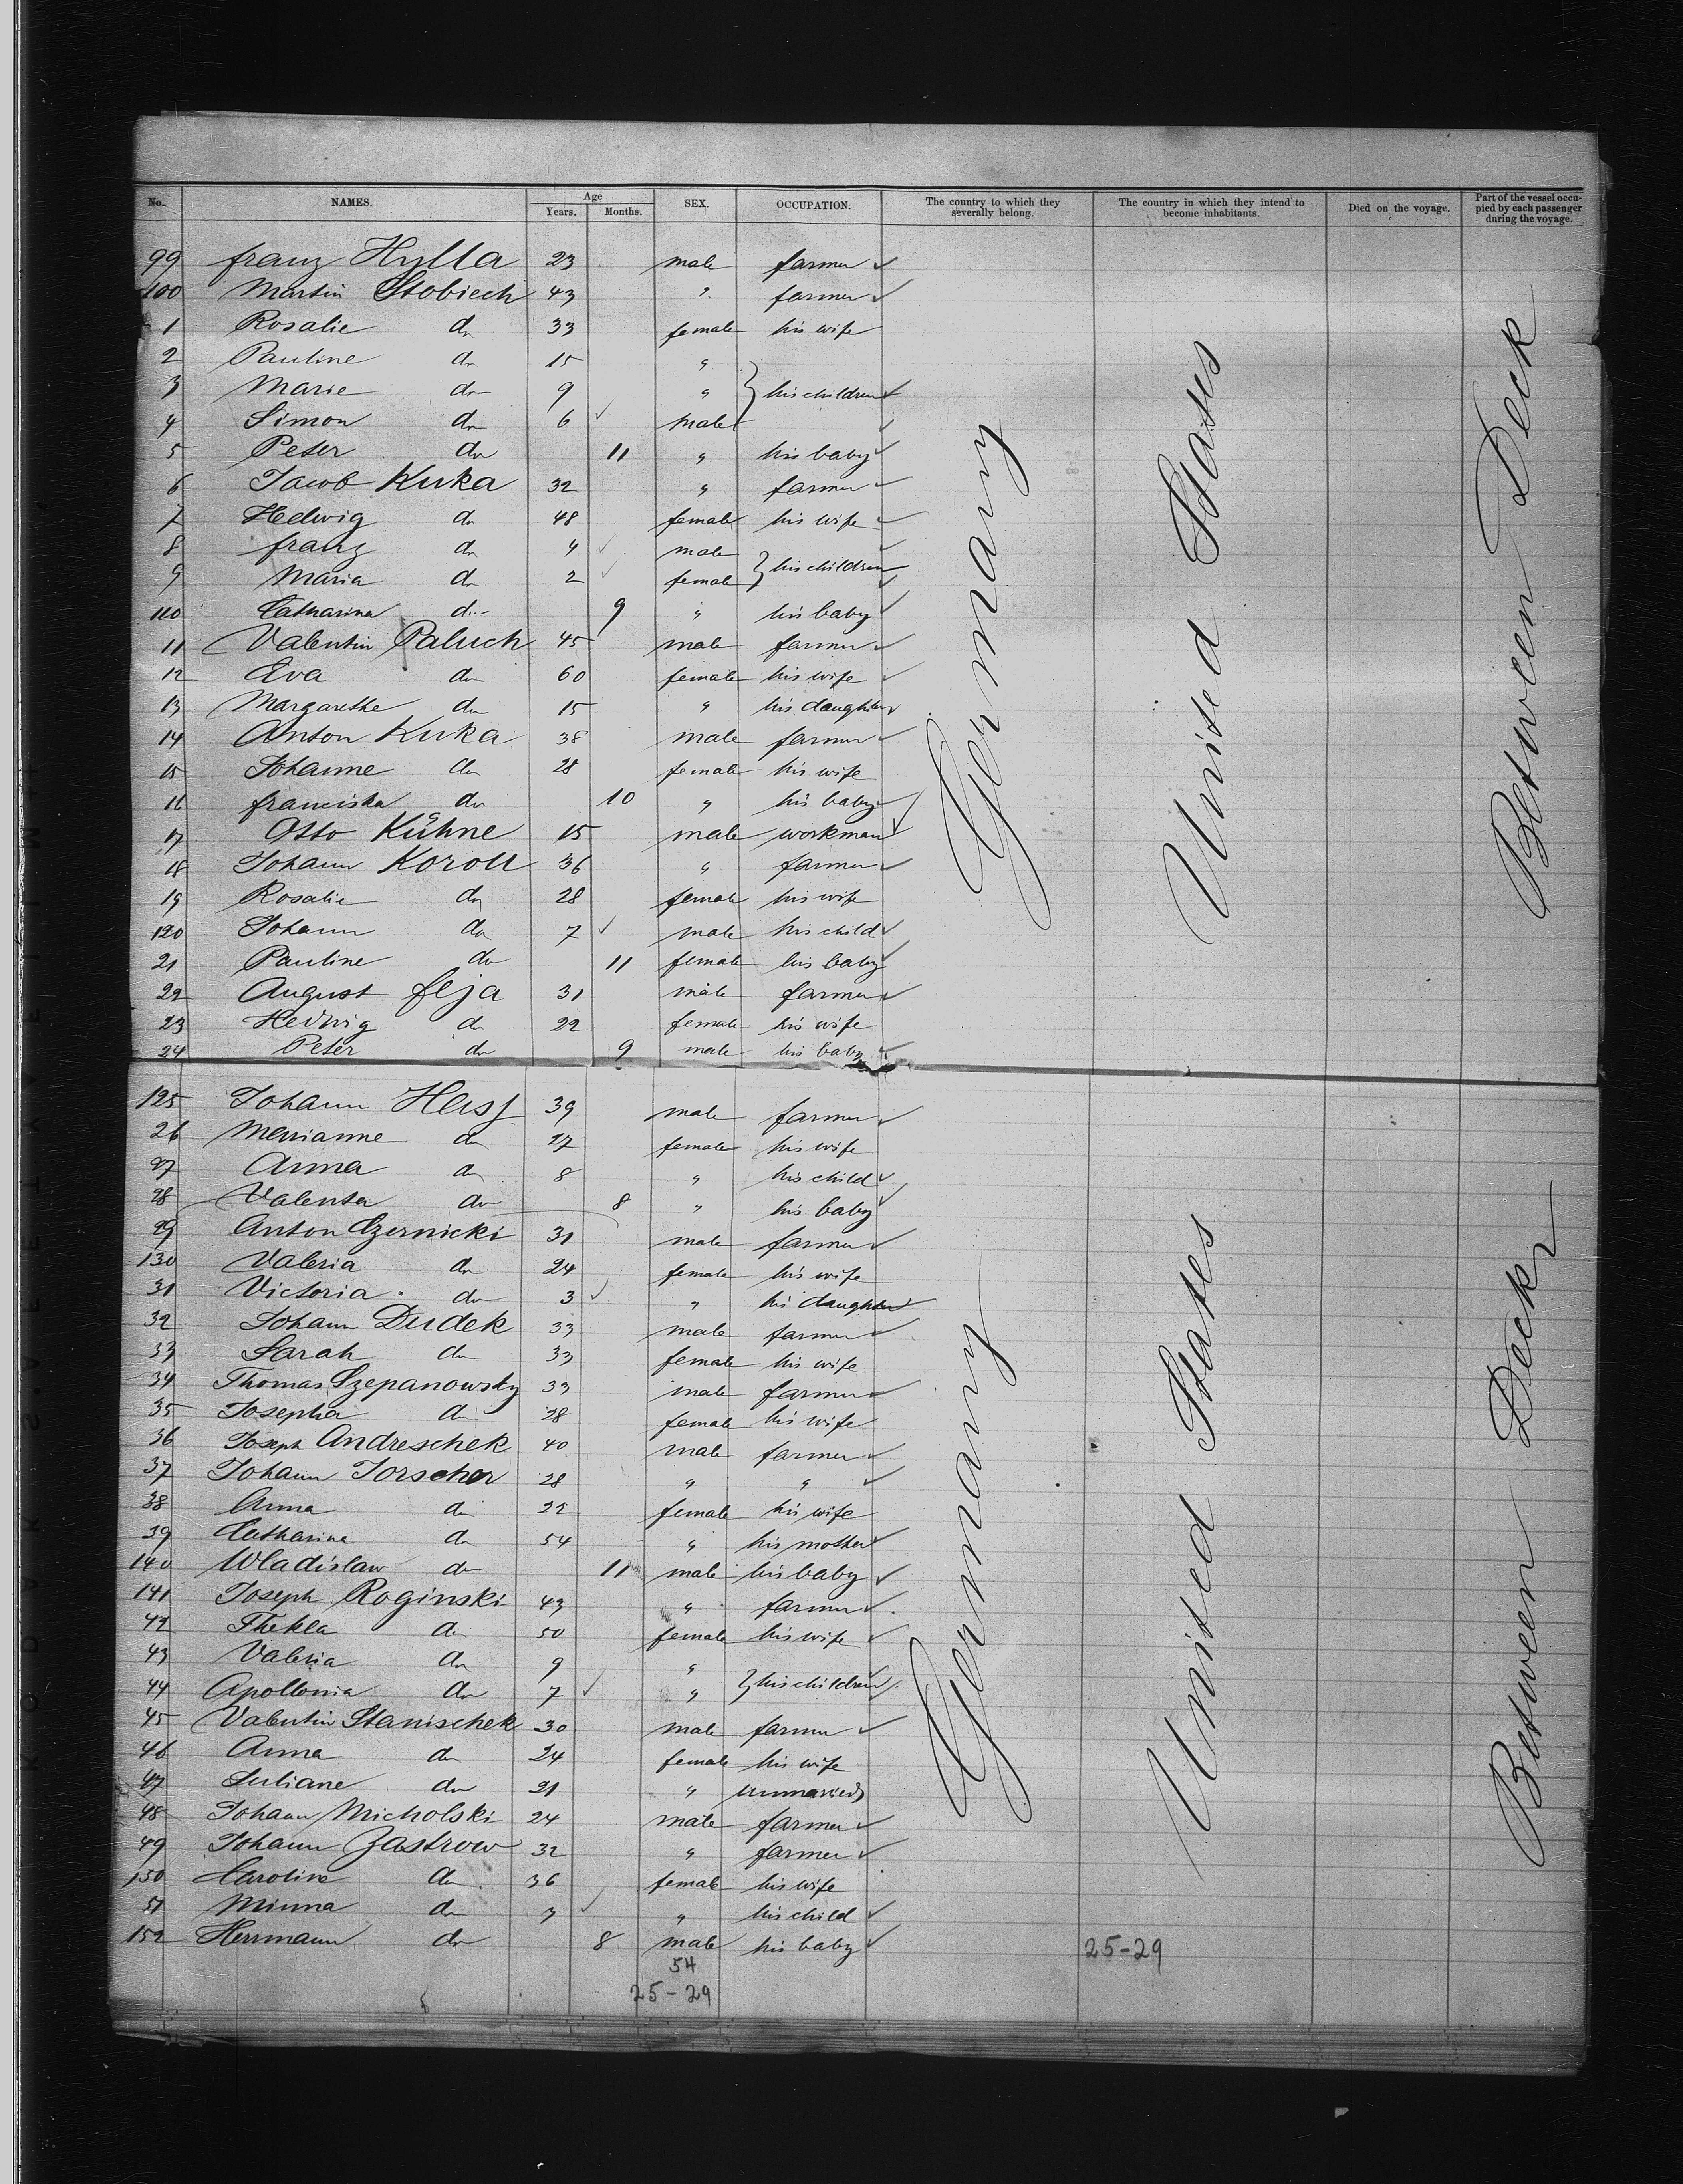 No. NAMES. Age Years. Months. SEX. OCCUPATION. The country to which they severally belong. The country in which they intend to become inhabitants. Died on the voyage. Part of the vessel occupied by each passenger during the voyage.
99 franz Hylla 23 male farmer
100 Martin Stobiech 43 " farmer
1 Rosalie do 33 female his wife
2 Pauline do 15 "
3 Marie do 9 " his children
4 Simon do 6 male
5 Peter do 11 " his baby
6 Jacob Kuka 32 " farmer
7 Hedwig do 48 female his wife
8 franz do 4 male
9 Maria do 2 female his children
110 Catharina do 9 " his baby
11 Valentin Paluch 45 male farmer
12 Eva do 60 female his wife
13 Margarethe do 15 " his daughter
14 Anton Kuka 38 male farmer
15 Johanne do 28 female his wife
16 franciska do 10 " his baby
17 Otto Kühne 15 male workman
18 Johann Koroll 36 " farmer
19 Rosalie do 28 female his wife
120 Johann do 7 male his child
21 Pauline do 11 female his baby
22 August feja 31 male farmer
23 Hedwig do 22 female his wife
24 Peter do 9 male his baby
Germany
United States
Between Deck
125 Johann 39 male farmer
26 Merianne do 27 female his wife
27 Anna do 8 " his child
28 Valenta do 8 " his baby
29 Anton Czernicki 31 male farmer
130 Valeria do 24 female his wife
31 Victoria do 3 " his daughter
32 Johann Dudek 33 male farmer
33 Sarah do 33 female his wife
34 Thomas Szepanowsky 33 male farmer
35 Josepha do 28 female his wife
36 Joseph Andreschek 40 male farmer
37 Johann 28 " "
38 Anna do 22 female his wife
39 Catharine do 54 " his mother
140 Wladislaw do 11 male his baby
141 Joseph Roginski 43 " farmer
42 Thekla do 50 female his wife
43 Valeria do 9 "
44 Apollonia do 7 " his children
45 Valentin Stanischek 30 male farmer
46 Anna do 24 female his wife
47 Juliane do 21 " unmaried
48 Johann Micholski 24 male farmer
49 Johann Zastrow 32 " farmer
150 Caroline do 36 female his wife
51 Minna do 3 " his child
152 Herrmann do 8 male his baby
Germany
United States
Between Deck
54
25-29
25-29